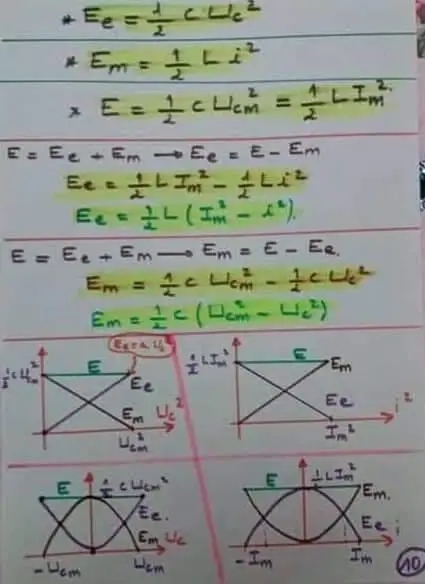 * Ee = 1/2 C Uc²
* Em = 1/2 L i²
* E = 1/2 C Ucm² = 1/2 L Im².
E = Ee + Em → Ee = E - Em
Ee = 1/2 L Im² - 1/2 L i²
Ee = 1/2 L (Im² - i²).
E = Ee + Em → Em = E - Ee.
Em = 1/2 C Ucm² - 1/2 C Uc²
Em = 1/2 C (Ucm² - Uc²)
Ee = a Uc²
1/2 C Ucm² E Ee
Em Uc²
Ucm²
1/2 L Im² E Em
Ee i²
Im²
E 1/2 C Ucm²
Ee.
Em Uc
-Ucm Ucm
E 1/2 L Im²
Em.
Ee i
-Im Im
10